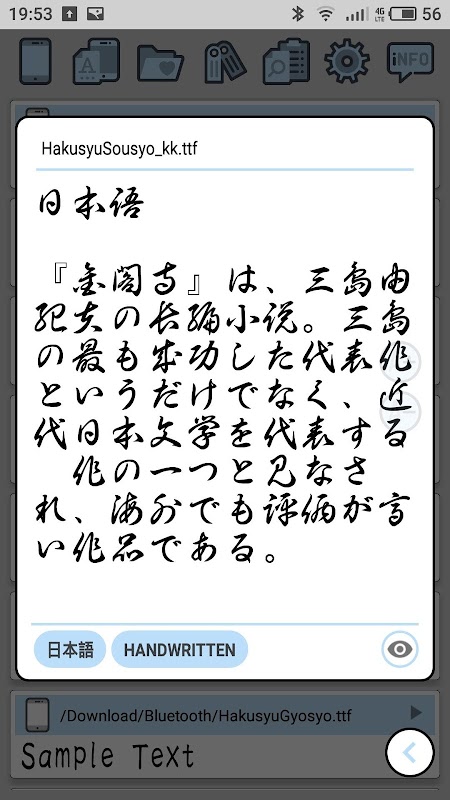 19:53
4G
LTE
56
A
iNFO
HakusyuSousyo_kk.ttf
日本語
『金閣寺』は、三島由
紀夫の長編小説。三島
の最も成功した代表作
というだけでなく、近
代日本文学を代表する
作の一つと見なさ
れ、海外でも評価が高
い作品である。
日本語
HANDWRITTEN
/Download/Bluetooth/HakusyuGyosyo.ttf
Sample Text